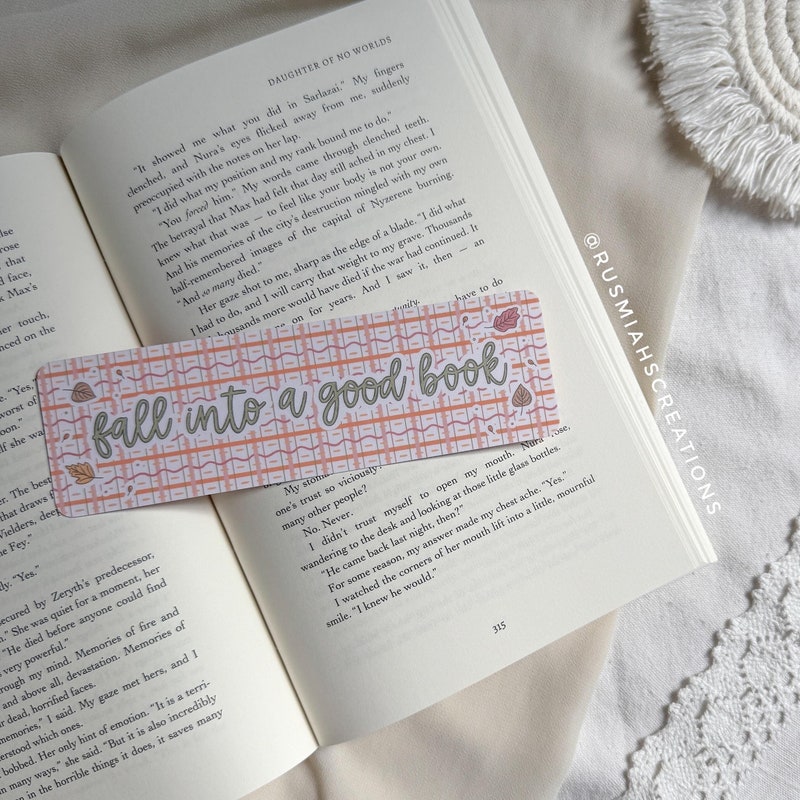 else
rose
that
d face,
Max's
her touch,
anced on the
"Yes,
worst of
oon."
The best
that draws
Wielders, deep
the Fey."
"Yes."
secured by Zeryth's predecessor,
She was quiet for a moment, her
"He died before anyone could find
very powerful."
rough my mind. Memories of fire and
and above all, devastation. Memories of
dead, horrified faces.
memories," I said. My gaze met hers, and I
understood which ones.
bobbed. Her only hint of emotion. "It is a terri-
many ways," she said. "But it is also incredibly
in the horrible things it does, it saves many
DAUGHTER OF NO WORLDS
"It showed me what you did in Sarlazai." My fingers
clenched, and Nura's eyes flicked away from me, suddenly
preoccupied with the notes on her lap.
"I did what my position and my rank bound me to do."
"You forced him." My words came through clenched teeth.
The betrayal that Max had felt that day still ached in my chest. I
knew what that was — to feel like your body is not your own.
And his memories of the city's destruction mingled with my own
half-remembered images of the capital of Nyzerene burning.
"And so many died."
Her gaze shot to me, sharp as the edge of a blade. "I did what
I had to do, and I will carry that weight to my grave. Thousands
thousands more would have died if the war had continued. It
on for years. And I saw it, then — an
have to do
fall into a good book
My stom
one's trust so viciously?
many other people?
No. Never.
I didn't trust myself to open my mouth. Nura rose,
wandering to the desk and looking at those little glass bottles.
"He came back last night, then?"
For some reason, my answer made my chest ache. "Yes."
I watched the corners of her mouth lift into a little, mournful
smile. "I knew he would."
315
@RUSMIAHSCREATIONS